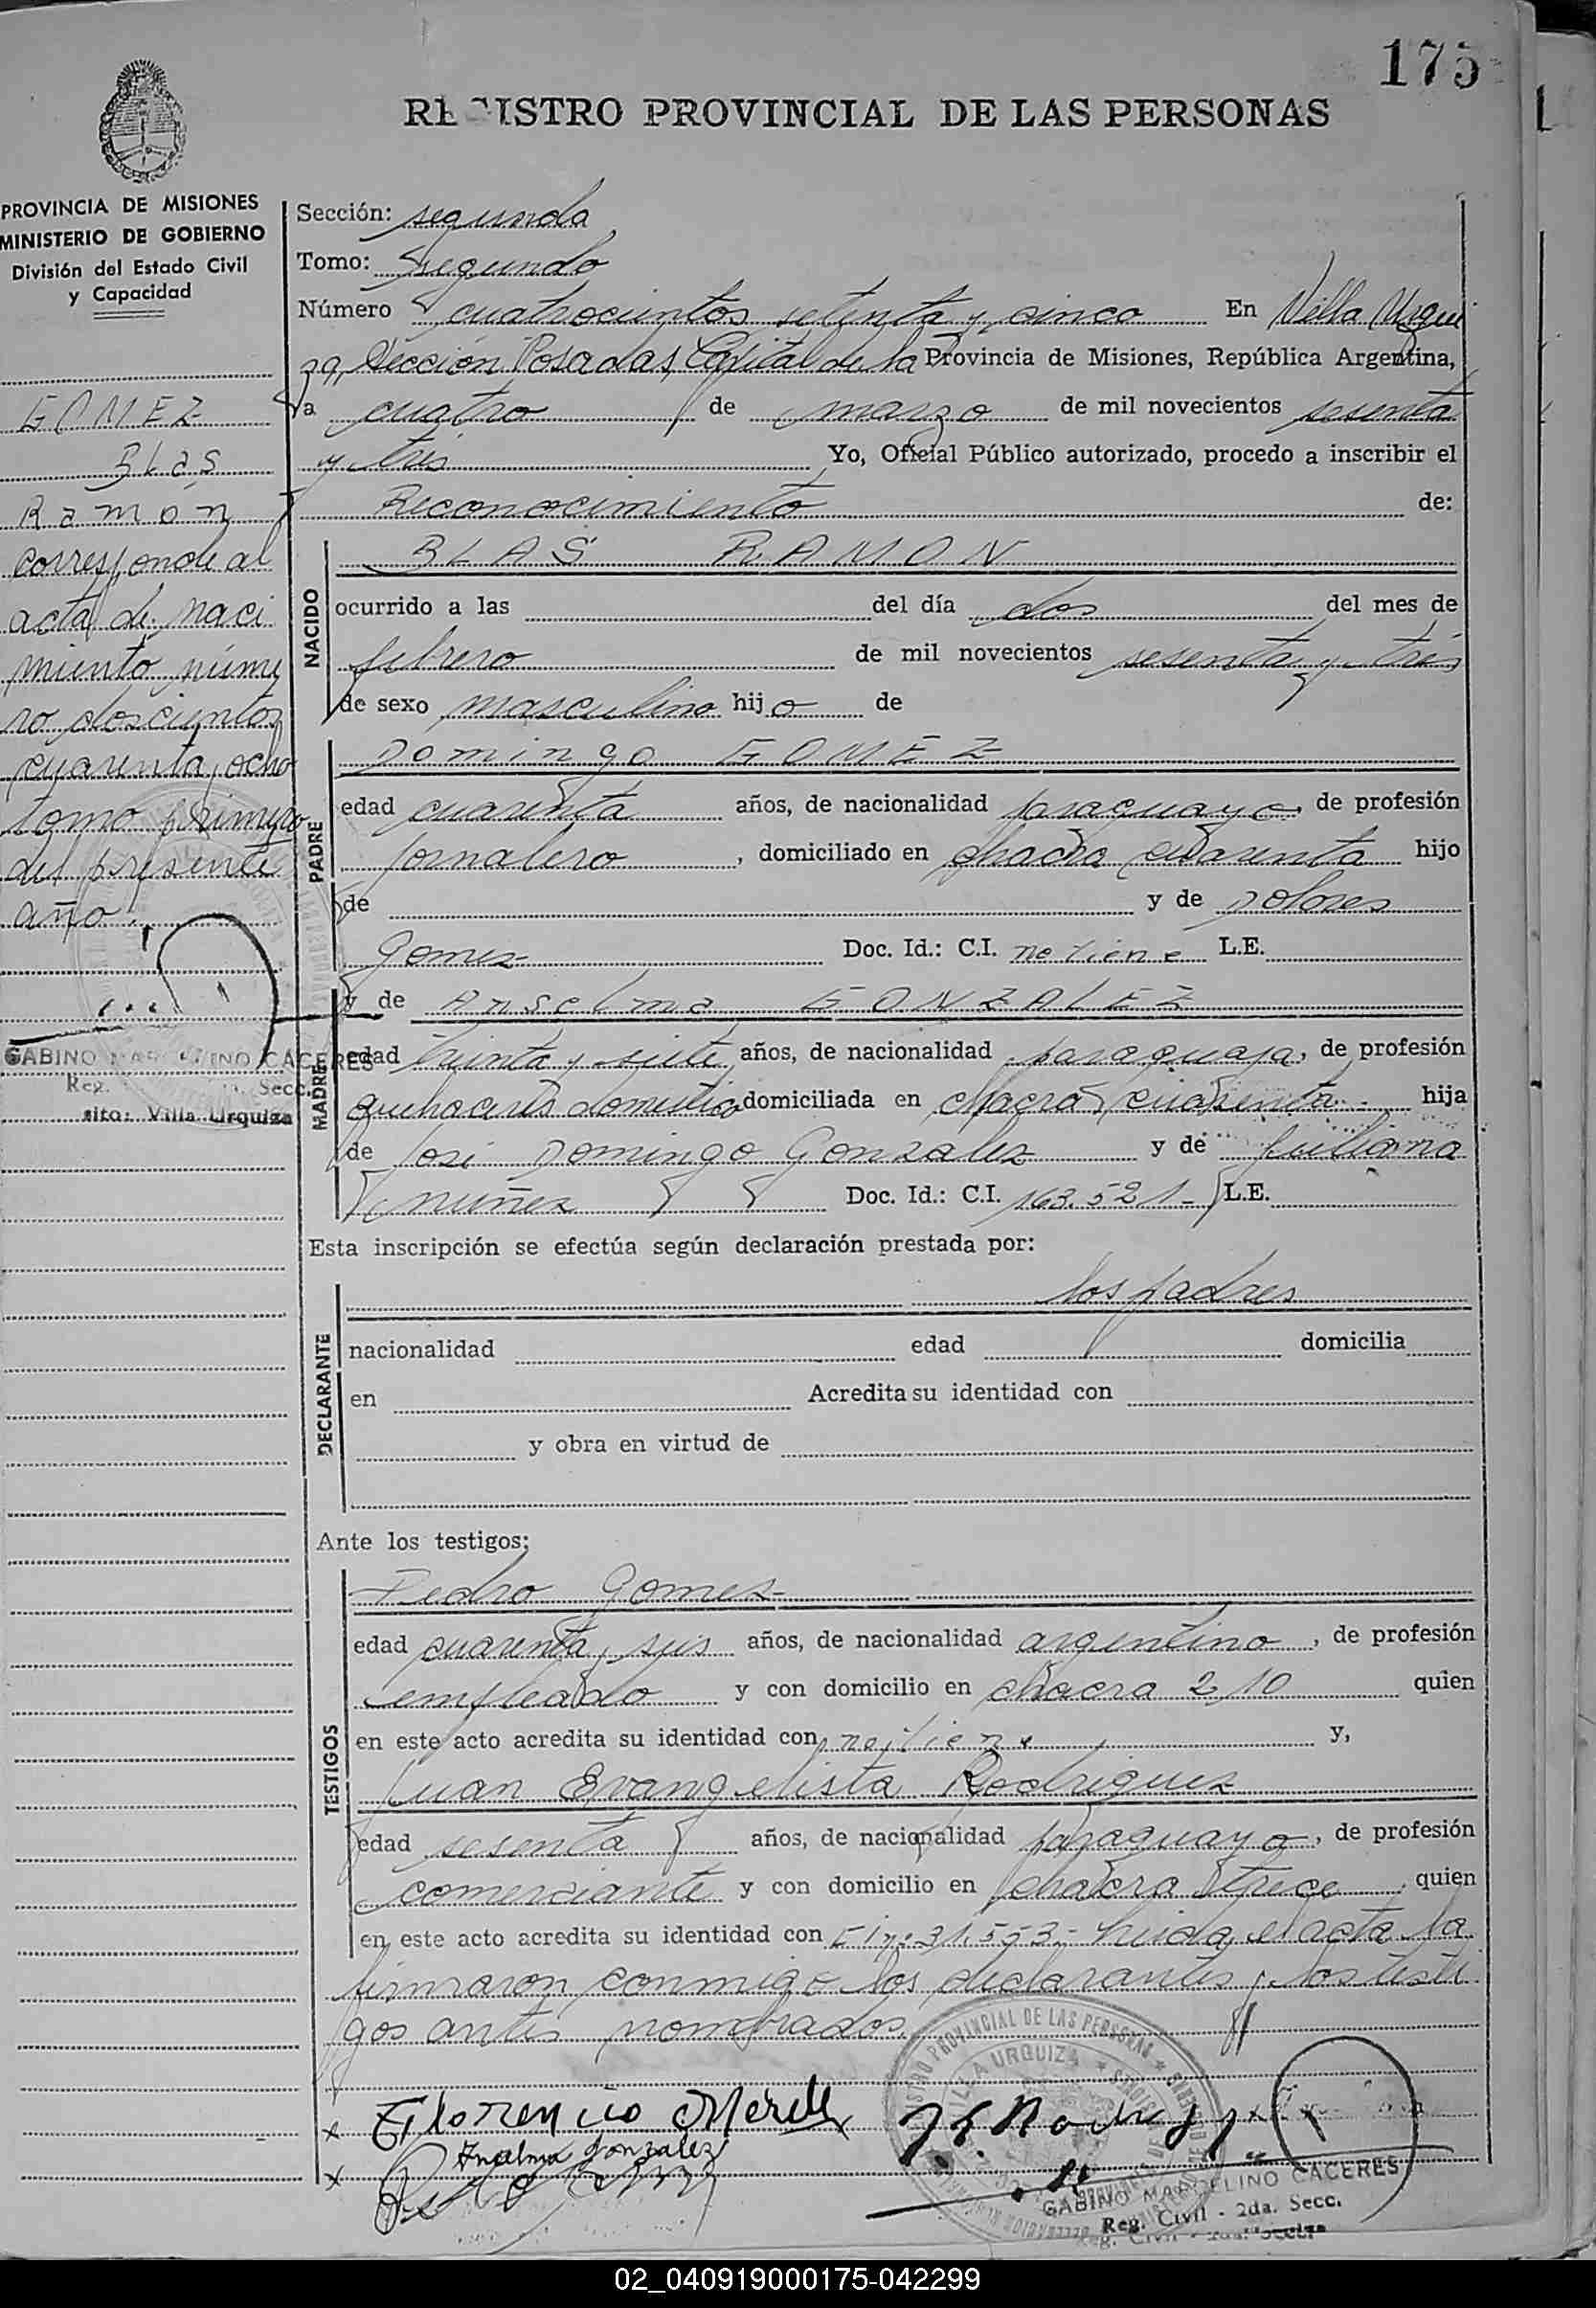 175
REGISTRO PROVINCIAL DE LAS PERSONAS
PROVINCIA DE MISIONES
MINISTERIO DE GOBIERNO
División del Estado Civil
y Capacidad
GOMEZ
Blas
Ramón
corresponde al
acta de naci
miento núme
ro doscientos
cuarenta y ocho
tomo primero
del presente
año.
GABINO MARCELINO CACERES
Reg. Secc.
sito: Villa Urquiza
Sección: segunda
Tomo: Segundo
Número cuatrocientos setenta y cinco En Villa Urqui
za, Sección Posadas, Capital de la Provincia de Misiones, República Argentina,
a cuatro de marzo de mil novecientos sesenta
y tres Yo, Oficial Público autorizado, procedo a inscribir el
Reconocimiento de:
NACIDO
BLAS RAMON
ocurrido a las del día dos del mes de
febrero de mil novecientos sesenta y tres
de sexo masculino hijo de
PADRE
Domingo GOMEZ
edad cuarenta años, de nacionalidad paraguayo, de profesión
jornalero, domiciliado en chacra cuarenta hijo
de y de Dolores
Gomez Doc. Id.: C.I. no tiene L.E.
MADRE
y de Anselma GONZALEZ
edad treinta y siete años, de nacionalidad paraguaya, de profesión
quehacerés domestico domiciliada en chacra cuarenta hija
de José Domingo Gonzalez y de Juliana
nuñez Doc. Id.: C.I. 163.521- L.E.
Esta inscripción se efectúa según declaración prestada por:
DECLARANTE
los padres
nacionalidad edad domicilia
en Acredita su identidad con
y obra en virtud de
Ante los testigos:
TESTIGOS
Pedro Gomez
edad cuarenta y seis años, de nacionalidad argentino, de profesión
empleado y con domicilio en chacra 210 quien
en este acto acredita su identidad con no tiene y,
Juan Evangelista Rodriguez
edad sesenta años, de nacionalidad paraguayo, de profesión
comerciante y con domicilio en chacra trece quien
en este acto acredita su identidad con leida el acta la
firmaron conmigo los declarantes y los testi
gos antes nombrados.
REGISTRO PROVINCIAL DE LAS PERSONAS
VILLA URQUIZA
Florencio
Anselma Gonzalez
GABINO MARCELINO CACERES
Reg. Civil - 2da. Secc.
02_040919000175-042299